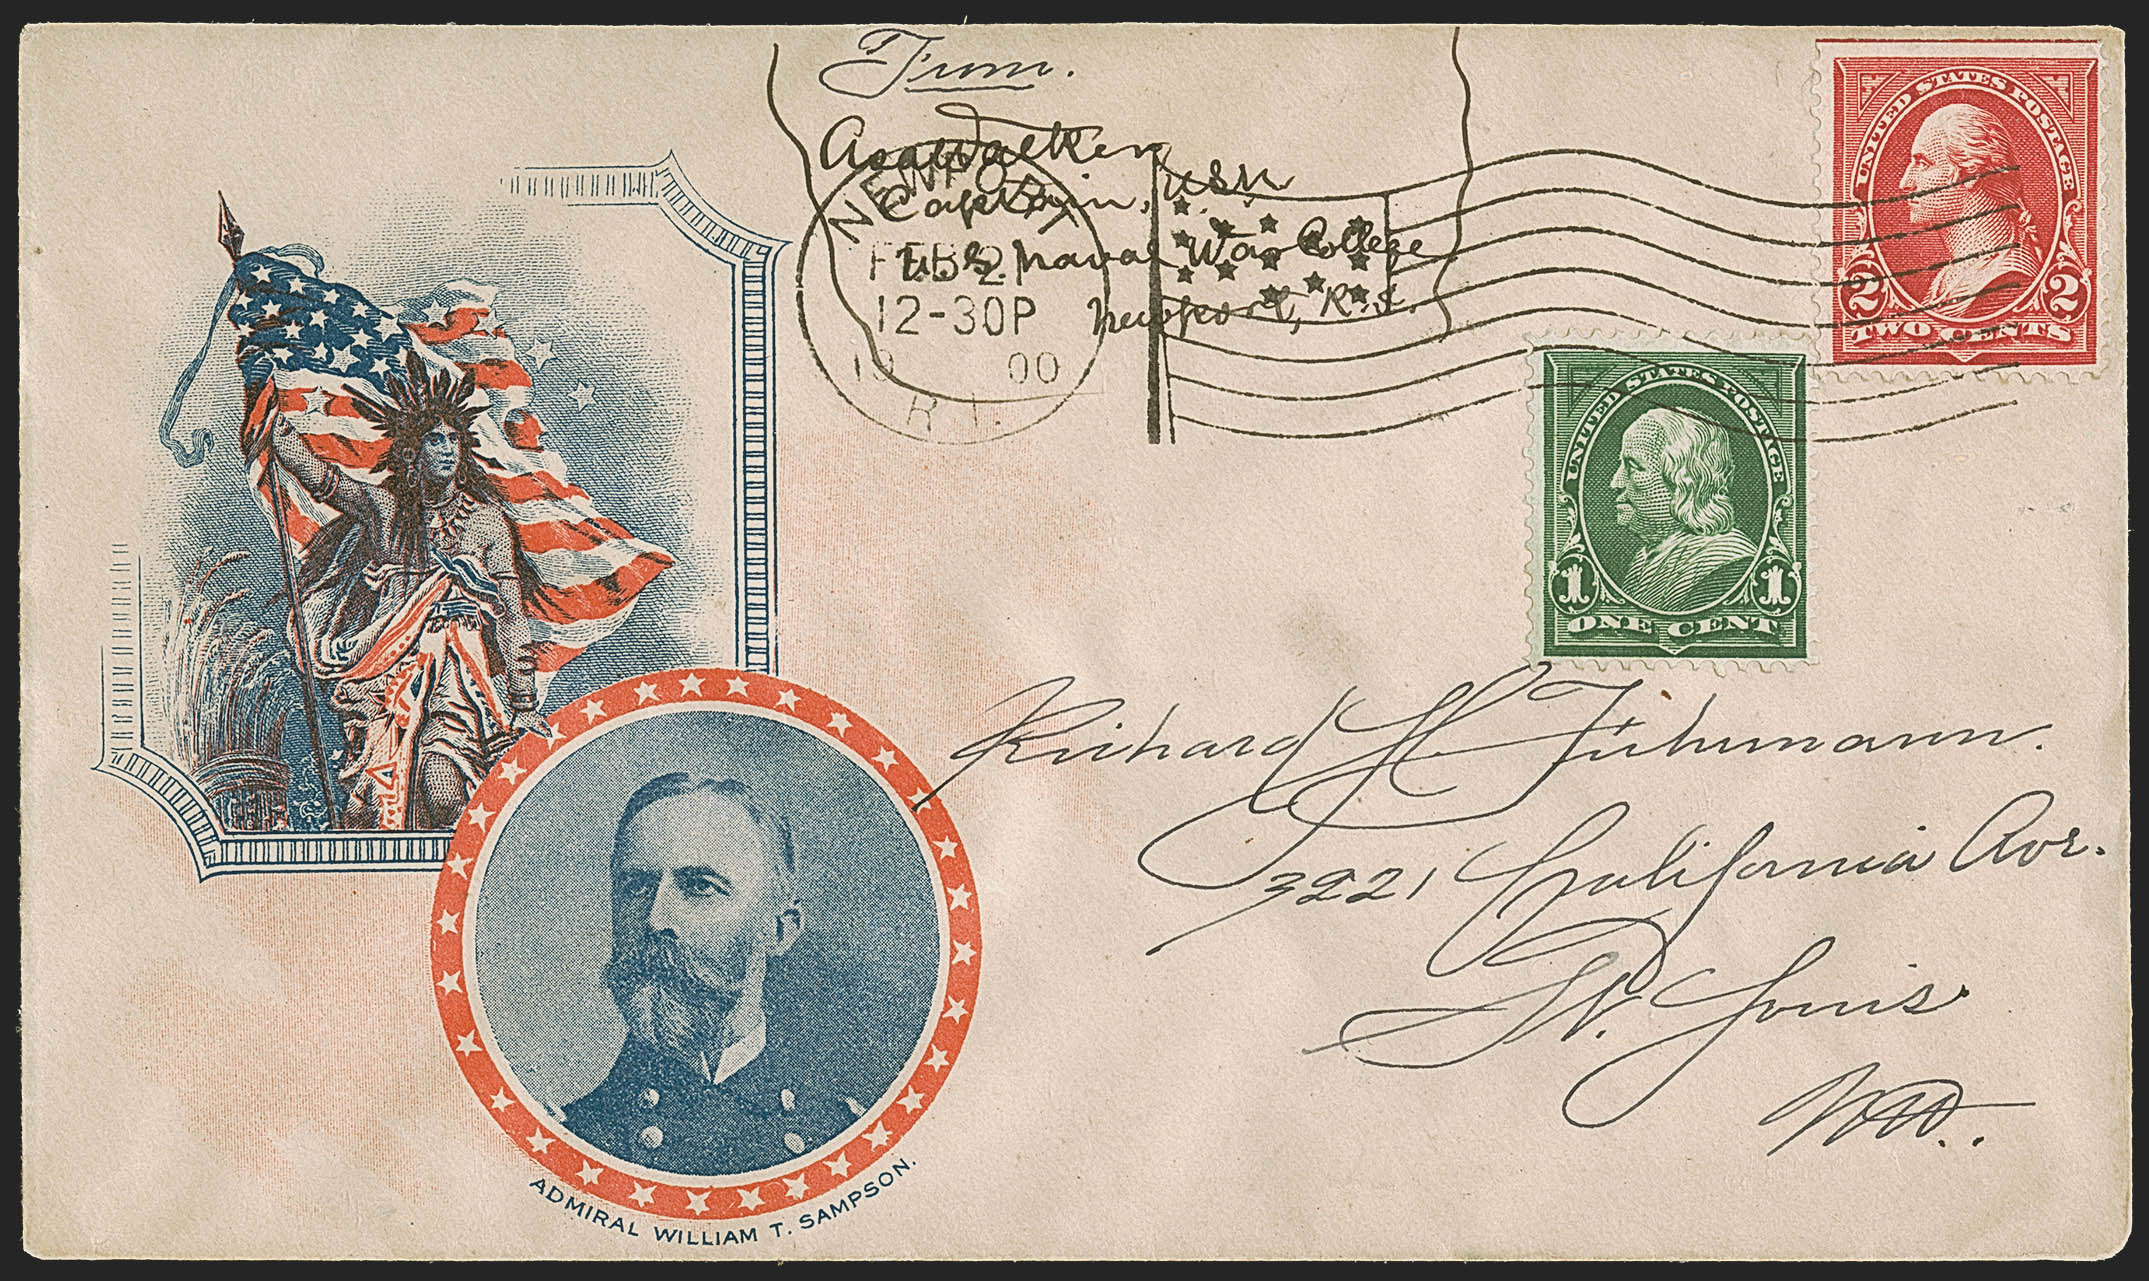 From.
Asa Walker
Captain, USN
U.S. Naval War College
Newport, R.I.
NEWPORT
FEB 21
12-30P
1900
R.I.
UNITED STATES POSTAGE
2 2
TWO CENTS
UNITED STATES POSTAGE
1 1
ONE CENT
Richard H Fuhrmann.
3221 California Ave.
St. Louis
Mo.
ADMIRAL WILLIAM T. SAMPSON.